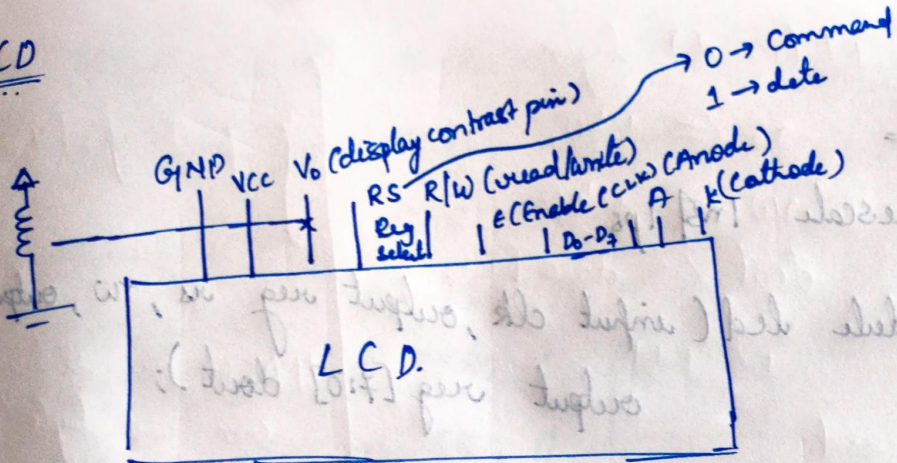 CD
0 → Command
1 → data
GND VCC V₀ (display contrast pin)
RS R/W (read/write) E (Enable (CLK) (Anode) A K (Cathode)
Reg select D₀-D₇
LCD.